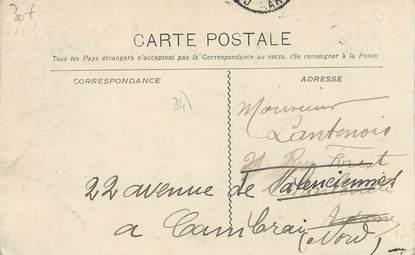 30t
CARTE POSTALE
Tous les Pays étrangers n'acceptent pas la Correspondance au recto. (Se renseigner à la Poste)
CORRESPONDANCE
ADRESSE
34)
Monsieur
Lantenois
21 Rue
22 avenue de Valenciennes
a Cambrai (Nord)